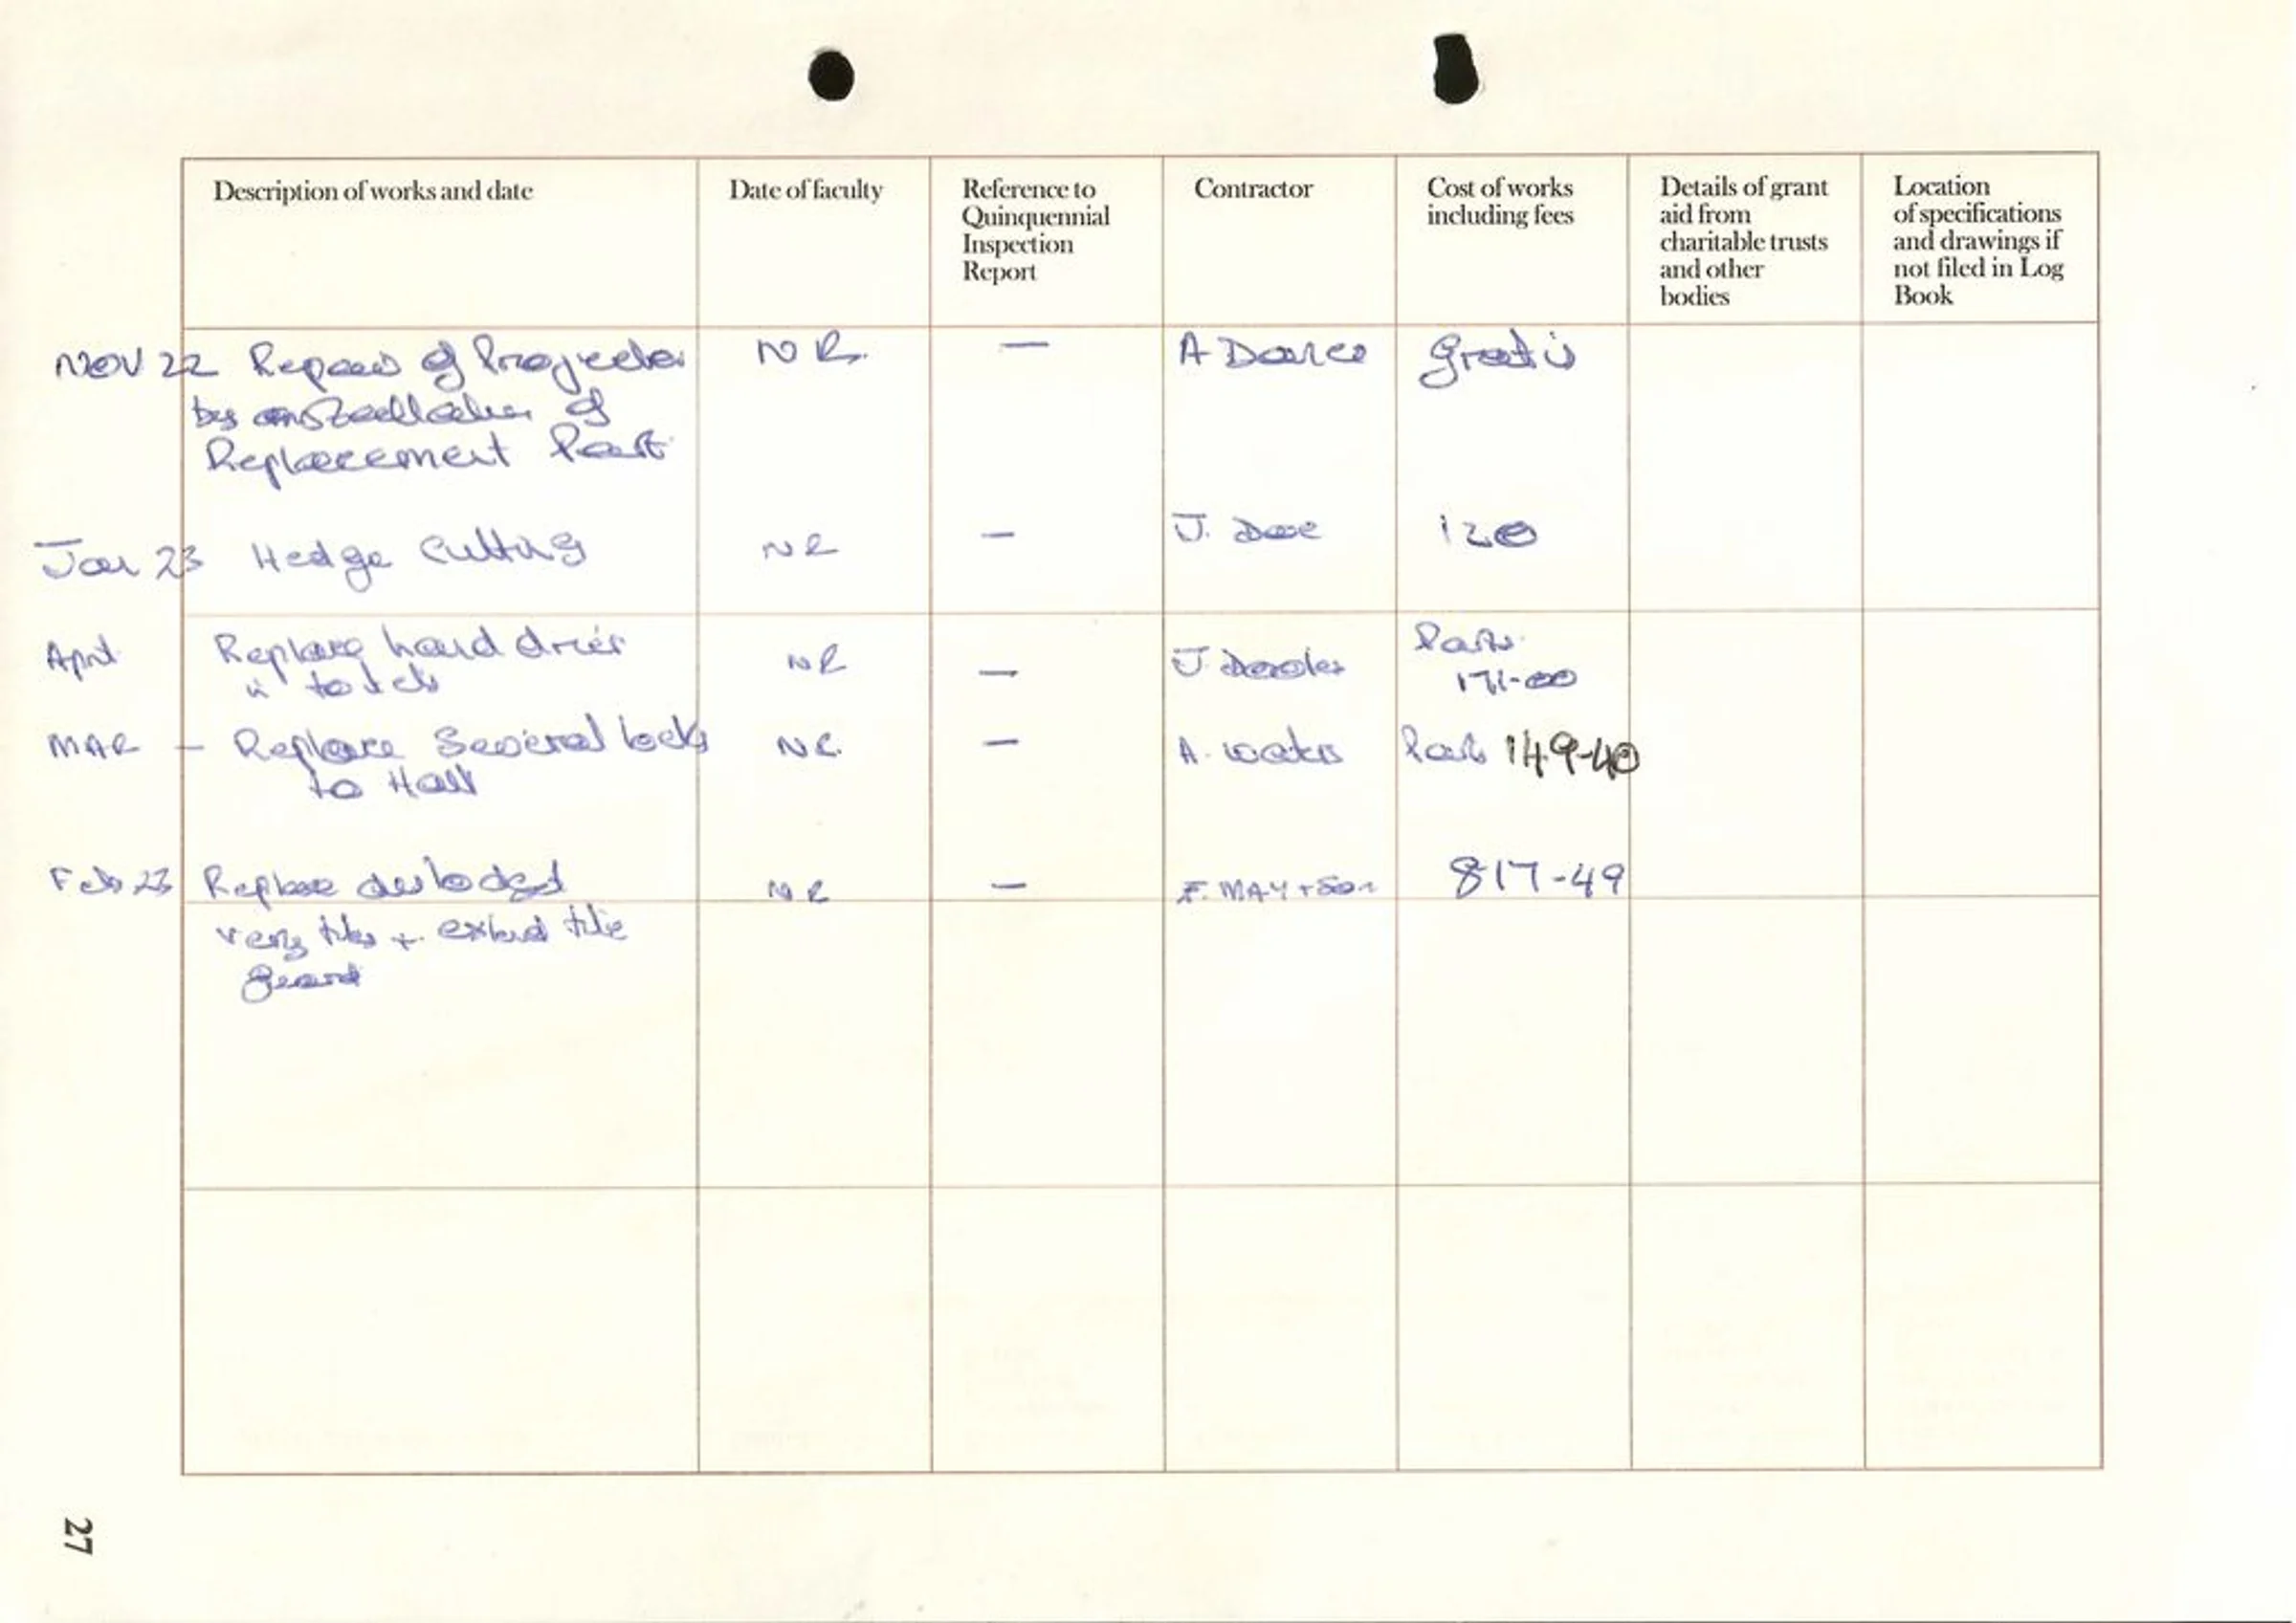 Description of works and date
Date of faculty
Reference to
Quinquennial
Inspection
Report
Contractor
Cost of works
including fees
Details of grant
aid from
charitable trusts
and other
bodies
Location
of specifications
and drawings if
not filed in Log
Book
Nov 22 Repair of Projector NR. — A gratis
by installation of
Replacement Part
Jan 23 Hedge Cutting NR — J. 120
April Replace hand drier NR — J. Parts
in toilets -00
MAR – Replace Several locks NR. — A. Parts 149-40
to Hall
Feb 23 Replace dislodged NR — F. MAY + Son 817-49
verg tiles + extend tile
guard
27